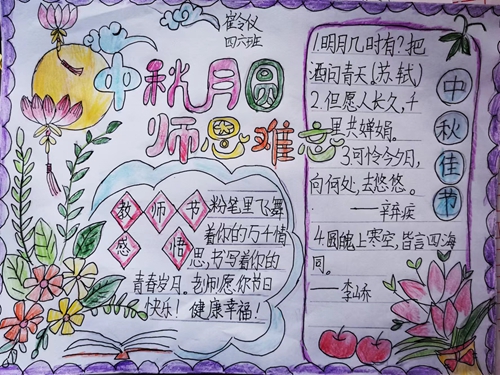 崔令仪
四六班
中秋月圆
师恩难忘
教师节
感悟
粉笔里飞舞
着你的万千情
思,书写着你的
青春岁月。教师愿你节日
快乐!健康幸福!
1.明月几时有?把
酒问青天(苏轼)
2.但愿人长久,千
里共婵娟。
3可怜今夕月,
向何处,去悠悠。
——辛弃疾
4.圆魄上寒空,皆言四海
同。
——李峤
中秋佳节